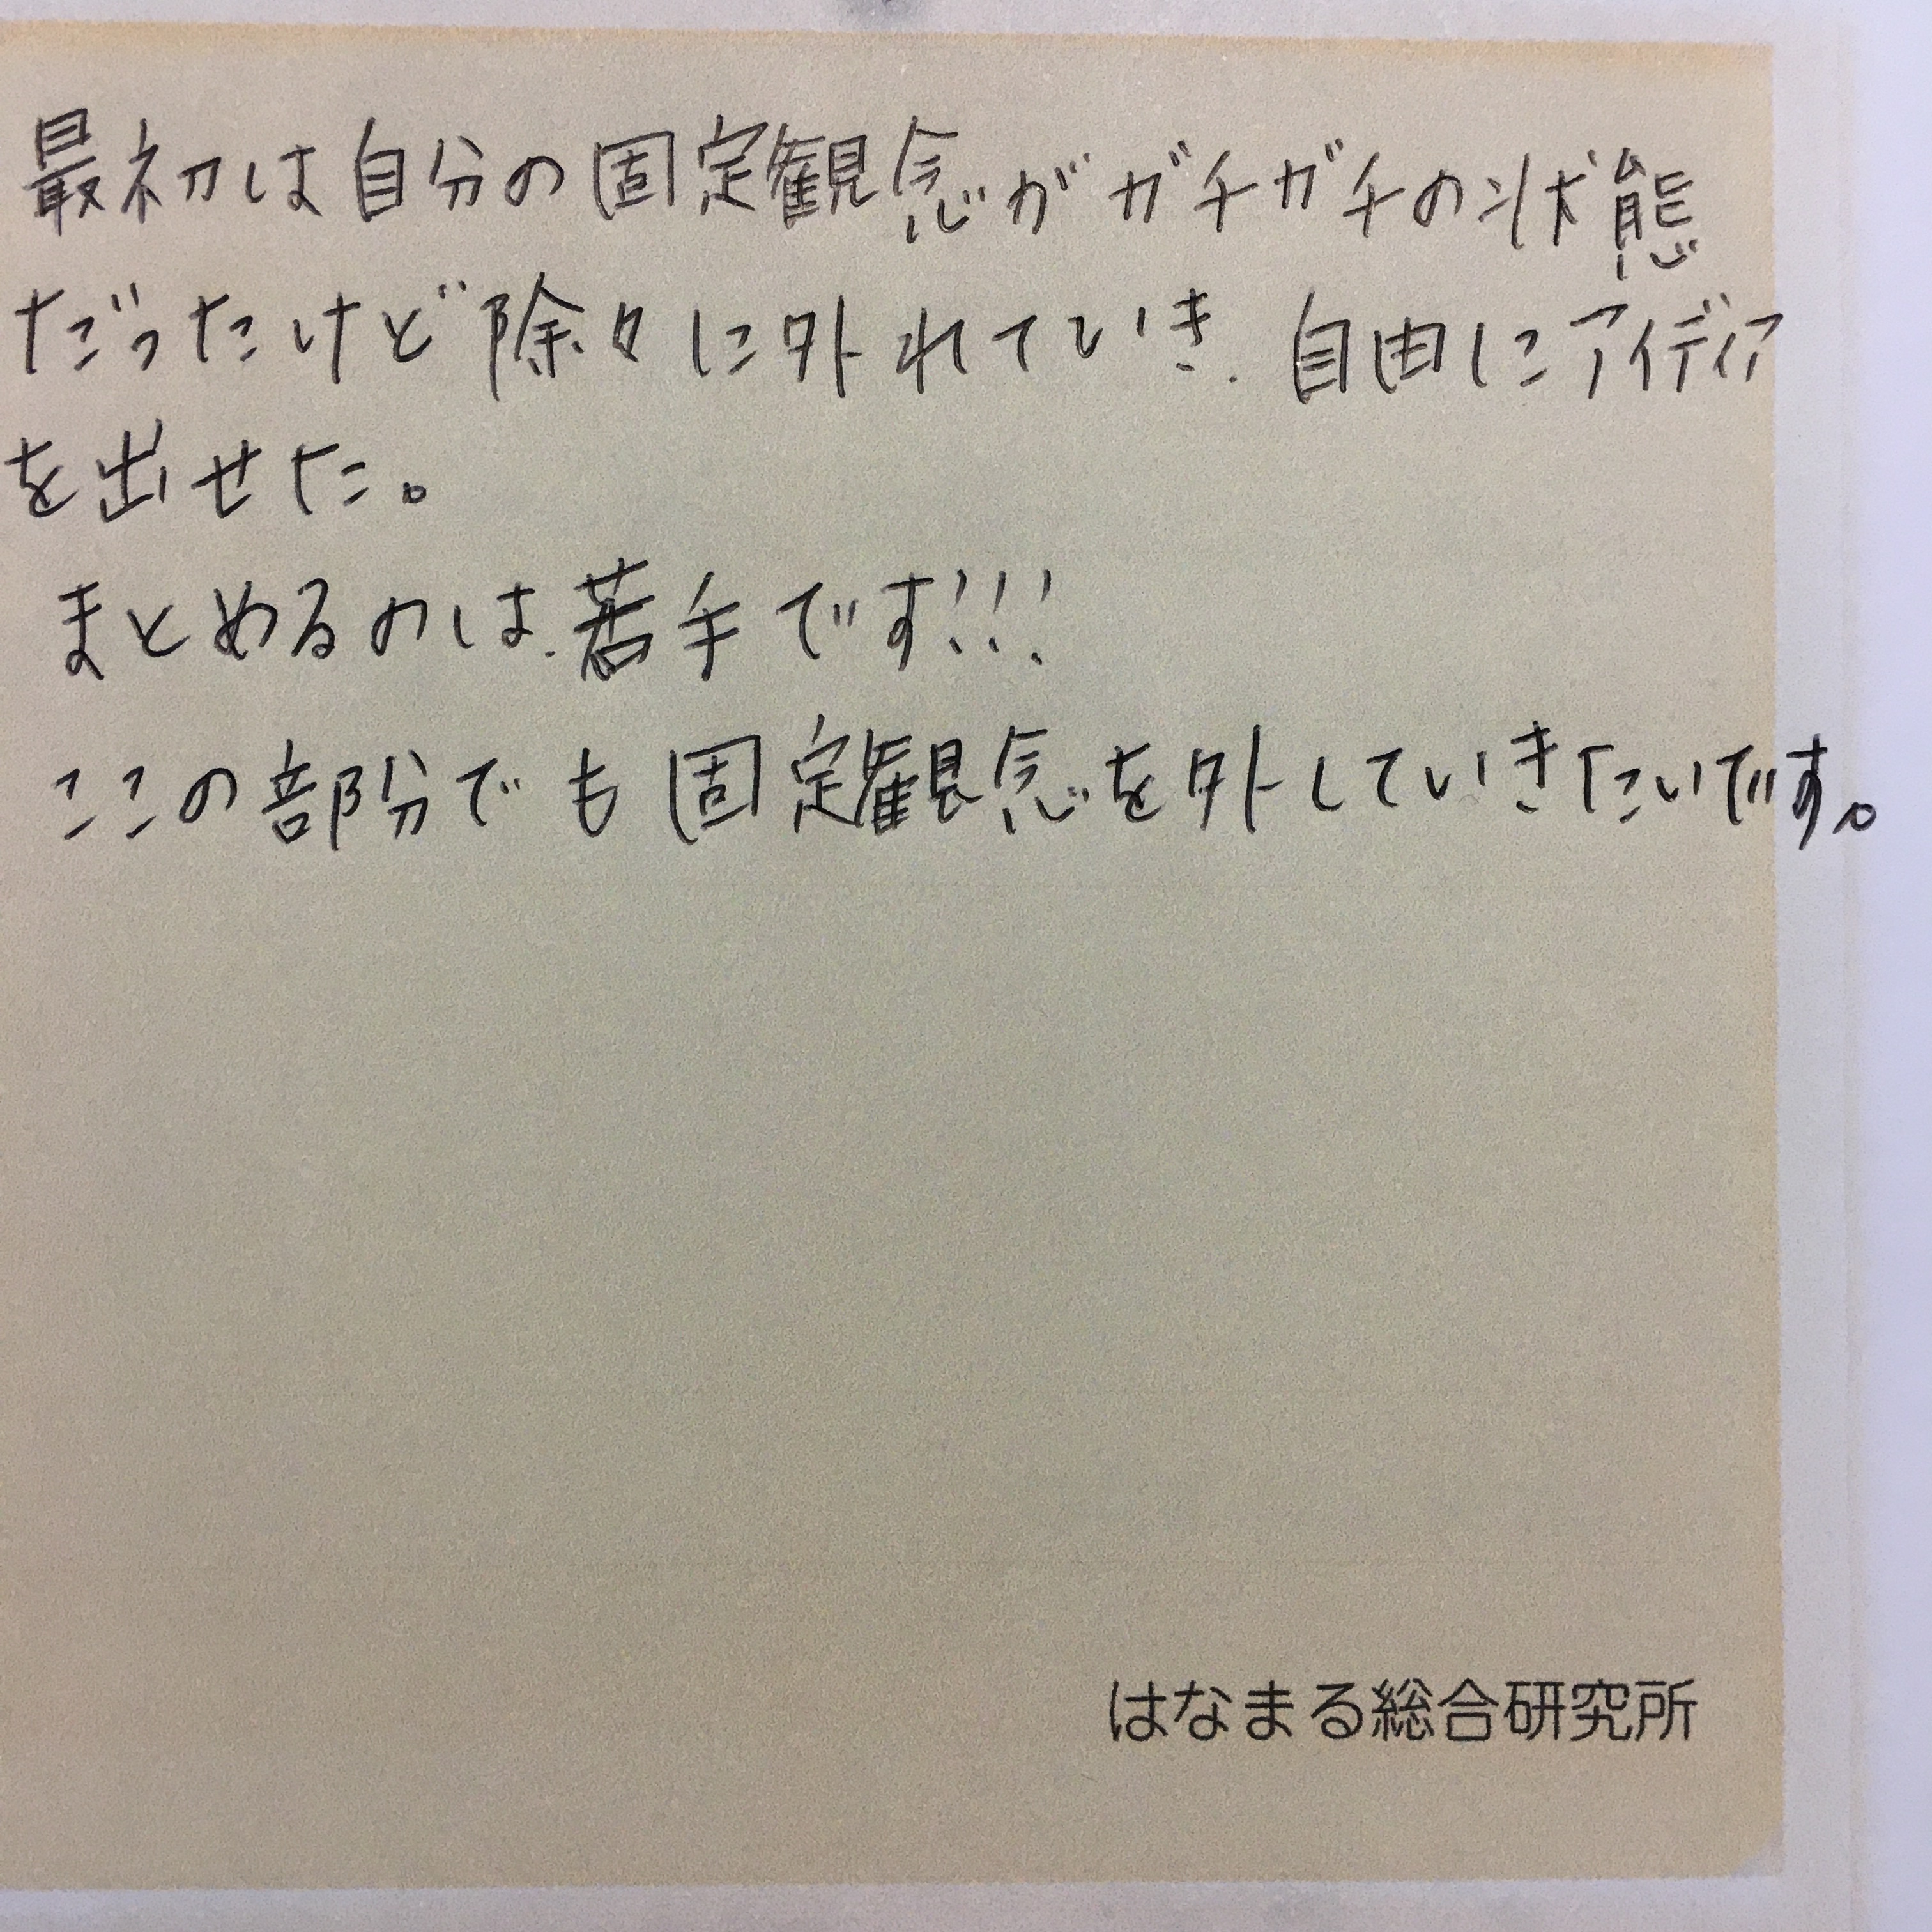 最初は自分の固定観念がガチガチの状態
だったけど除々に外れていき、自由にアイディア
を出せた。
まとめるのは、苦手です!!!
ここの部分でも固定観念を外していきたいです。
はなまる総合研究所